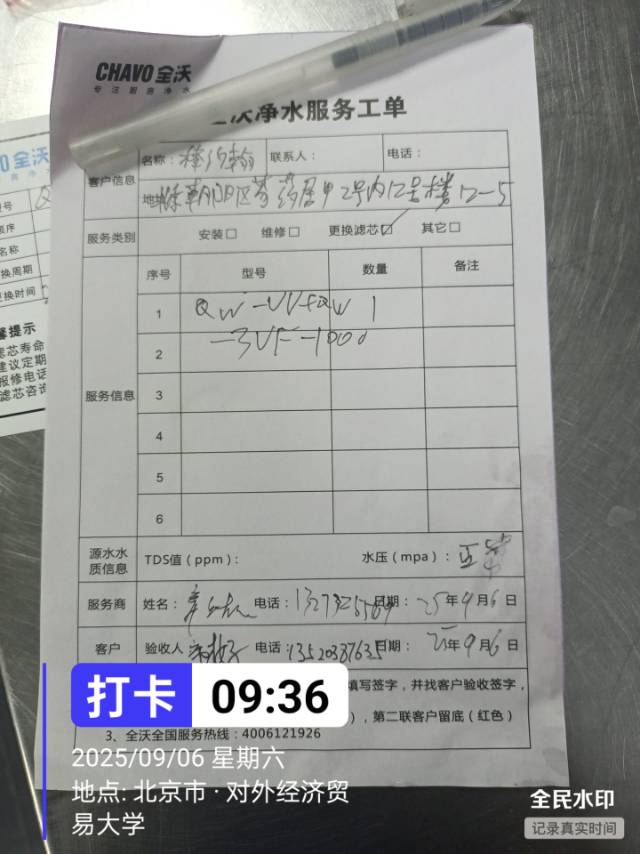 CHAVO 全沃
专注厨房净水
沃净水服务工单
客户信息
名称：
联系人：
电话：
地址： 朝阳区芍药居甲2号内12号楼12-5
服务类别
安装□ 维修□ 更换滤芯☑ 其它□
服务信息
序号 型号 数量 备注
1 QW-UV+QW 1
2 -3UF-1000
3
4
5
6
源水水质信息
TDS值（ppm）：
水压（mpa）：正常
服务商 姓名： 电话： 日期：25年9月6日
客户 验收人 电话：13520337635 日期：25年9月6日
填写签字，并找客户验收签字，
），第二联客户留底（红色）
3、全沃全国服务热线：4006121926
全沃
型号
顺序
名称
换周期
更换时间
馨提示
滤芯寿命
建议定期
报修电话
滤芯咨询
打卡 09:36
2025/09/06 星期六
地点: 北京市·对外经济贸
易大学
全民水印
记录真实时间